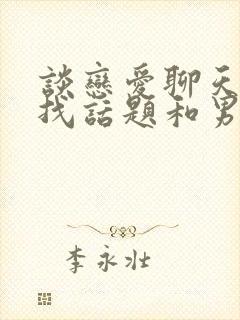 談戀愛聊天
找話題和男
李永壯